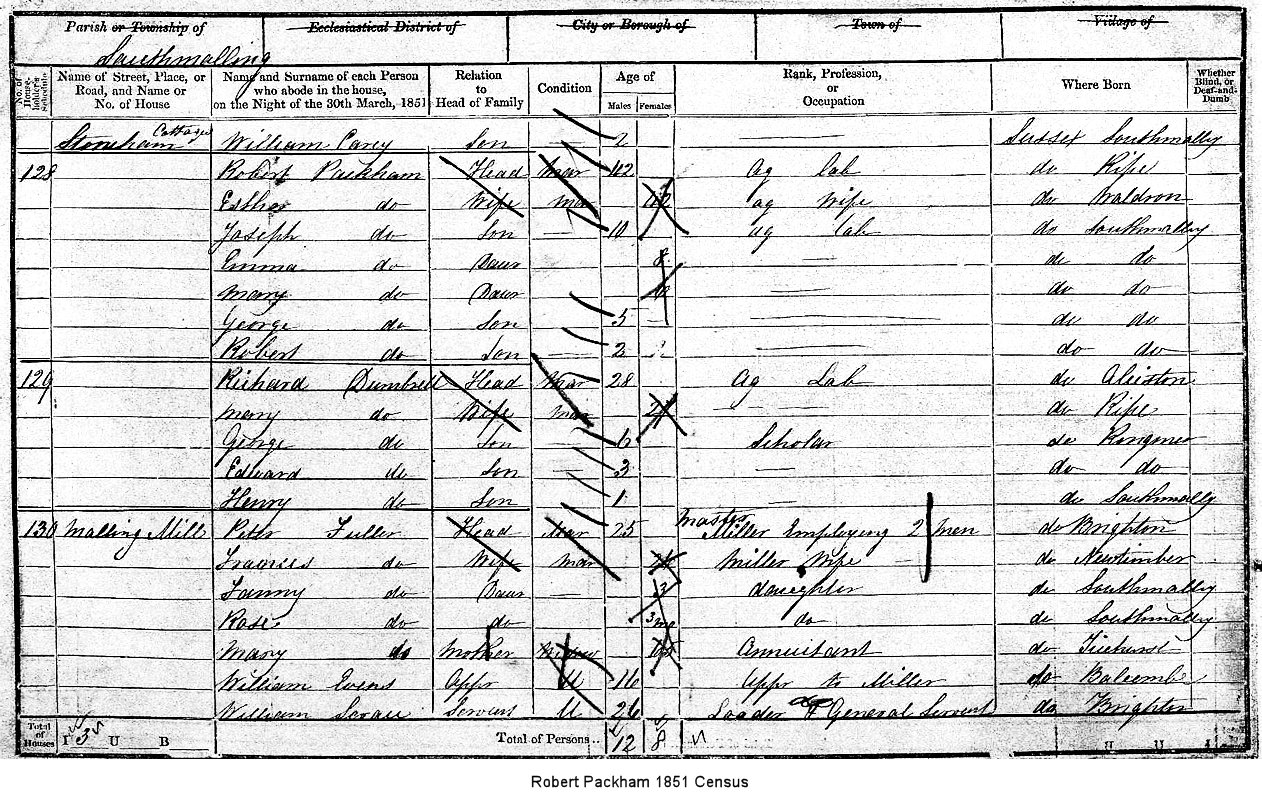 Parish or Township of Ecclesiastical District of City or Borough of Town of Village of
Southmalling
No. of House-holder's Schedule Name of Street, Place, or Road, and Name or No. of House Name and Surname of each Person who abode in the house, on the Night of the 30th March, 1851 Relation to Head of Family Condition Age of Males Females Rank, Profession, or Occupation Where Born Whether Blind, or Deaf-and-Dumb
Stoneham Cottages William Carey Son — 2 — Sussex Southmally
128 Robert Packham Head Mar 42 ag lab do Ripe
Esther do Wife Mar ag Wife do Waldron
Joseph do Son — 10 ag lab do Southmally
Emma do Daur 8 — do do
Mary do Daur — do do
George do Son 5 — do do
Robert do Son — 2 do do
129 Richard Dumbrell Head Mar 28 Ag Lab do Alciston
Mary do Wife Mar — do Ripe
George do Son 6 Scholar do Ringmer
Edward do Son 3 — do do
Henry do Son 1 — do Southmally
130 Malling Mill Peter Fuller Head Mar 25 Master Miller Employing 2 men do Brighton
Frances do Wife Mar Miller Wife do Newtimber
Fanny do Daur — daughter do Southmally
Rose do do 3 mo do do Southmally
Mary do Mother Widow Annuitant do Ticehurst
William Evens Appr U 16 Appr to Miller do Balcombe
William Servant U 26 Loader & General Servant do Brighton
Total of Houses I 3 U B Total of Persons.. 12 8
Robert Packham 1851 Census